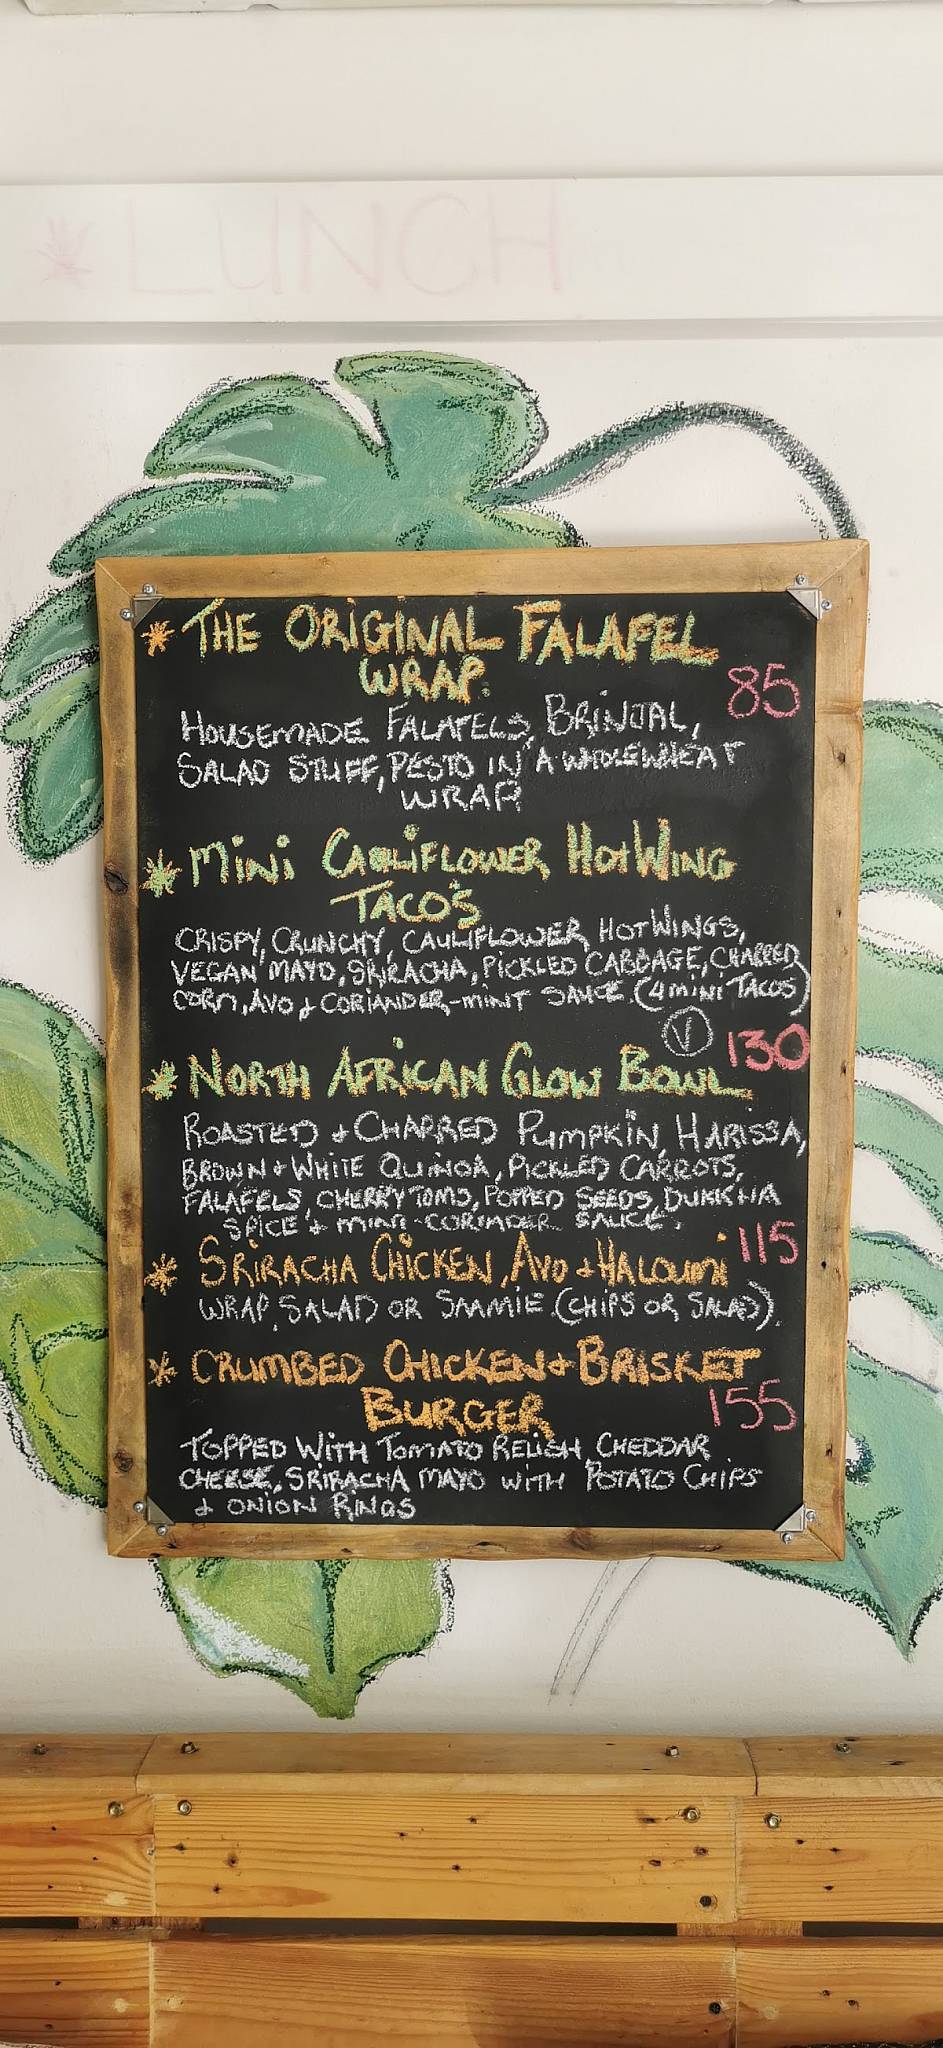 *LUNCH
* THE ORIGINAL FALAFEL
WRAP.
85
HOUSEMADE FALAFELS, BRINJAL,
SALAD STUFF, PESTO IN A WHOLEWHEAT
WRAP
* MINI CAULIFLOWER HOTWING
TACO'S
CRISPY, CRUNCHY, CAULIFLOWER HOTWINGS,
VEGAN MAYO, SRIRACHA, PICKLED CABBAGE, CHARRED
CORN, AVO + CORIANDER-MINT SAUCE. (4 MINI TACOS)
V 130
* NORTH AFRICAN GLOW BOWL
ROASTED + CHARRED PUMPKIN, HARISSA,
BROWN + WHITE QUINOA, PICKLED CARROTS,
FALAFELS, CHERRY TOMS, POPPED SEEDS, DUKKHA
SPICE + MINT-CORIANDER SAUCE.
115
* SRIRACHA CHICKEN, AVO + HALOUMI
WRAP, SALAD OR SAMMIE (CHIPS OR SALAD).
* CRUMBED CHICKEN + BRISKET
BURGER
155
TOPPED WITH TOMATO RELISH, CHEDDAR
CHEESE, SRIRACHA MAYO WITH POTATO CHIPS
+ ONION RINGS